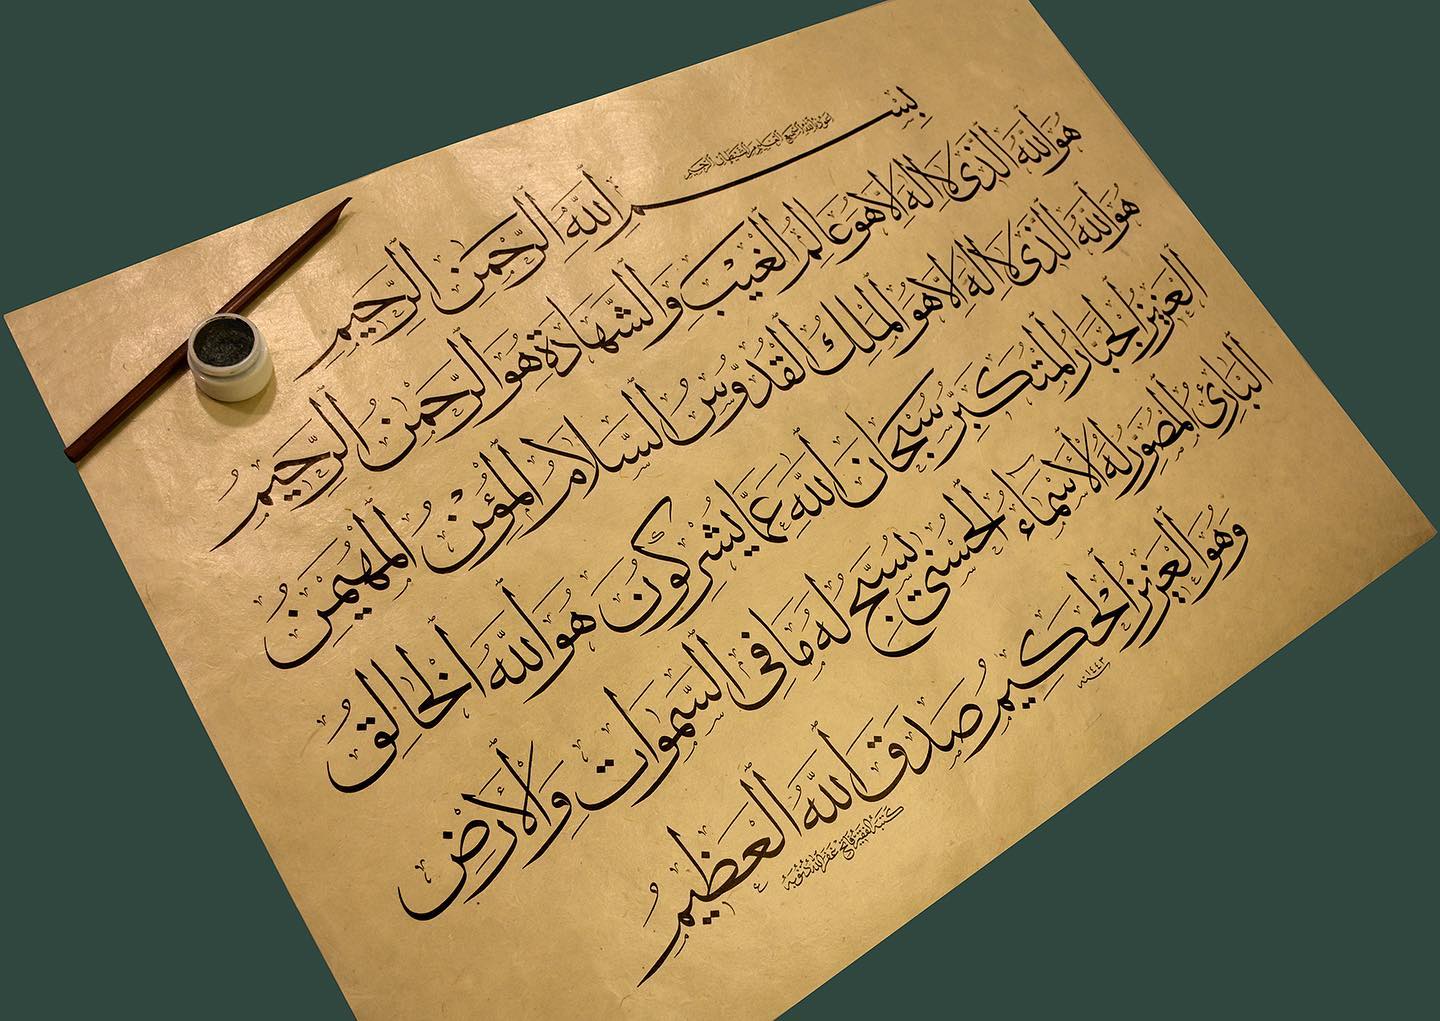 أعوذ بالله السميع العليم من الشيطان الرجيم
بسم الله الرحمن الرحيم
هو الله الذى لا اله الا هو عالم الغيب والشهادة هو الرحمن الرحيم
هو الله الذى لا اله الا هو الملك القدوس السلام المؤمن المهيمن
العزيز الجبار المتكبر سبحان الله عما يشركون هو الله الخالق
البارئ المصور له الأسماء الحسنى يسبح له ما فى السموات والأرض
وهو العزيز الحكيم صدق الله العظيم
كتبه الفقير فاتح غفر الله ذنوبه
سنة ١٤٤٣